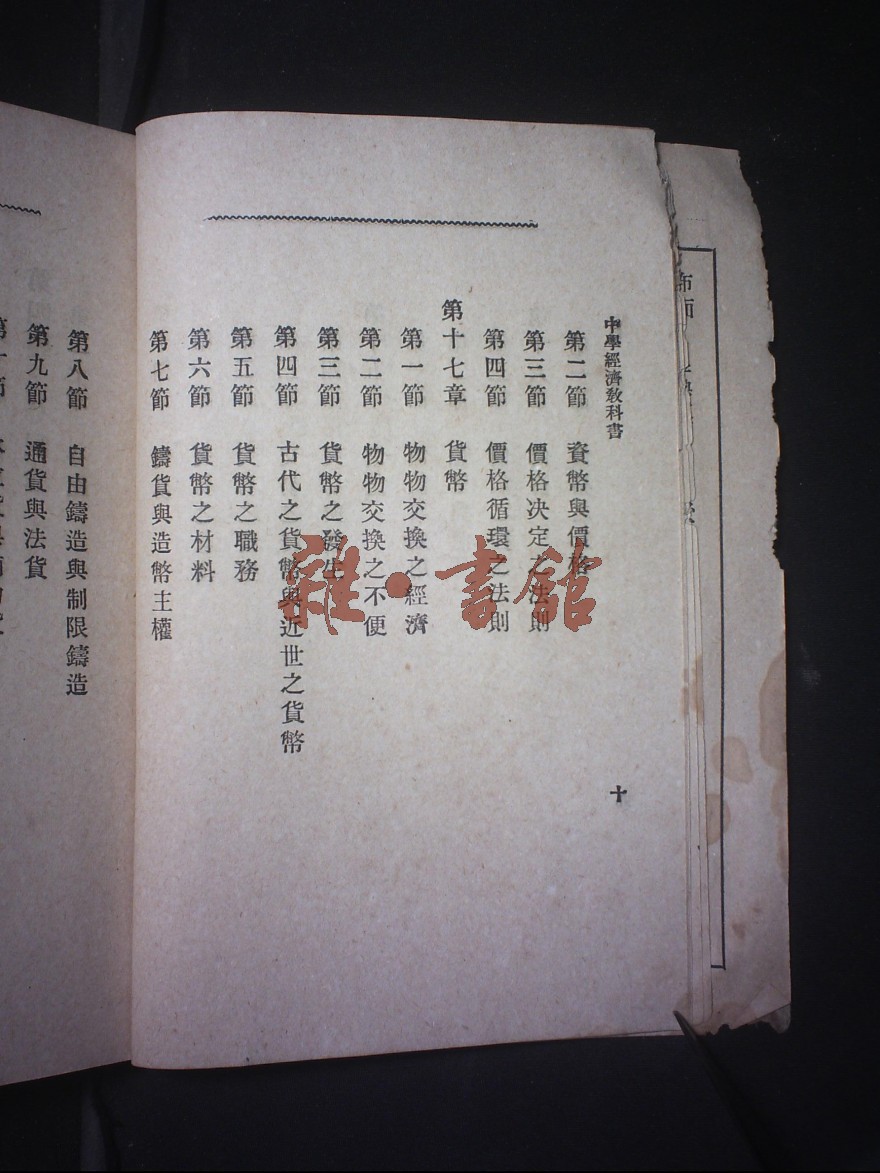 中學經濟敎科書
十
第二節 資幣與價格
第三節 價格決定之法則
第四節 價格循環之法則
第十七章 貨幣
第一節 物物交換之經濟
第二節 物物交換之不便
第三節 貨幣之發生
第四節 古代之貨幣與近世之貨幣
第五節 貨幣之職務
第六節 貨幣之材料
第七節 鑄貨與造幣主權
第八節 自由鑄造與制限鑄造
第九節 通貨與法貨
雜·書館